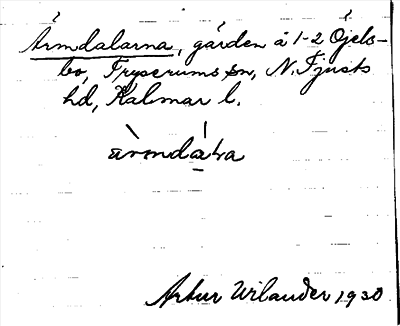 Ärmdalarna, gården å 1-2 Öjels-
bo, Fryserums sn, N. Tjusts
hd, Kalmar l.
ä̀rmdáɬa
Artur Wilander 1930